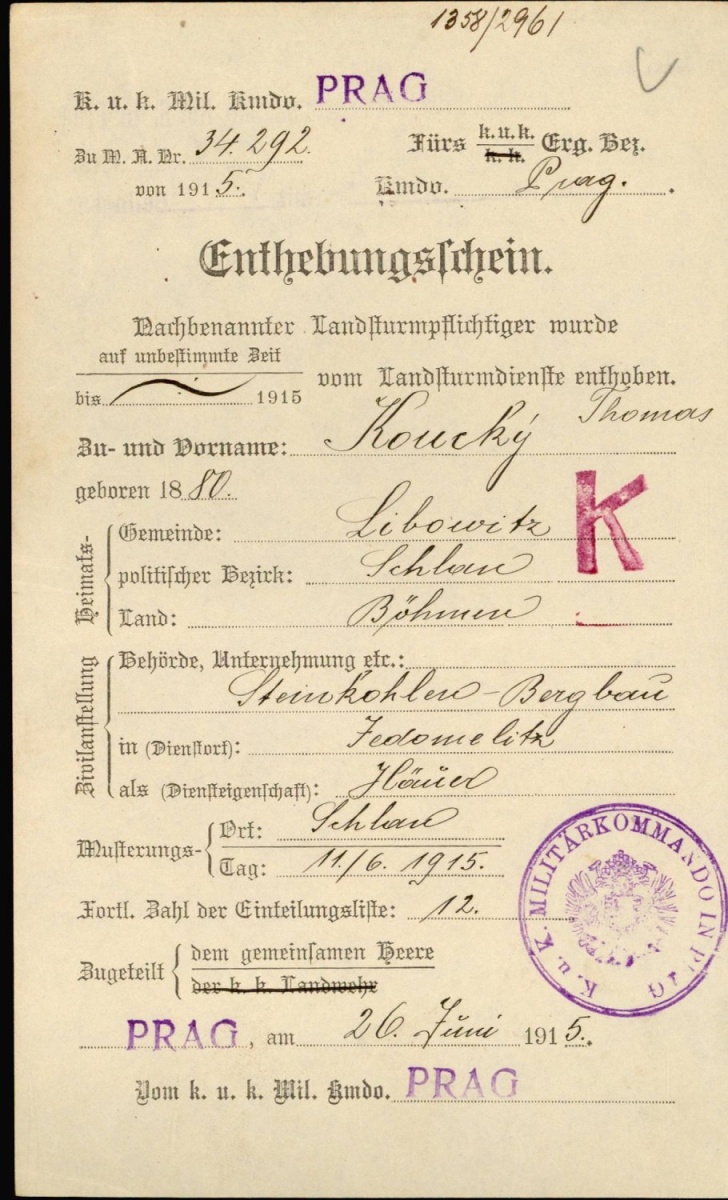 1358/2961
K. u. k. Mil. Kmdo. PRAG
Zu M. A. Nr. 34.292.
von 1915.
Fürs k.u.k. Erg. Bez.
k. k.
Kmdo. Prag.
Enthebungsschein.
Nachbenannter Landsturmpflichtiger wurde
auf unbestimmte Zeit
bis 1915
vom Landsturmdienste enthoben.
Zu- und Vorname: Koucký Thomas
geboren 1880.
Heimats-
Gemeinde: Libowitz
K
politischer Bezirk: Schlan
Land: Böhmen
Zivilanstellung
Behörde, Unternehmung etc.:
Steinkohlen-Bergbau
in (Dienstort): Jedomelitz
als (Diensteigenschaft): Häuer
Musterungs-
Ort: Schlan
Tag: 11./6. 1915.
Fortl. Zahl der Einteilungsliste: 12.
Zugeteilt
dem gemeinsamen Heere
der k. k. Landwehr
K. u. K. MILITÄRKOMMANDO IN PRAG
PRAG, am 26. Juni 1915.
Vom k. u. k. Mil. Kmdo. PRAG